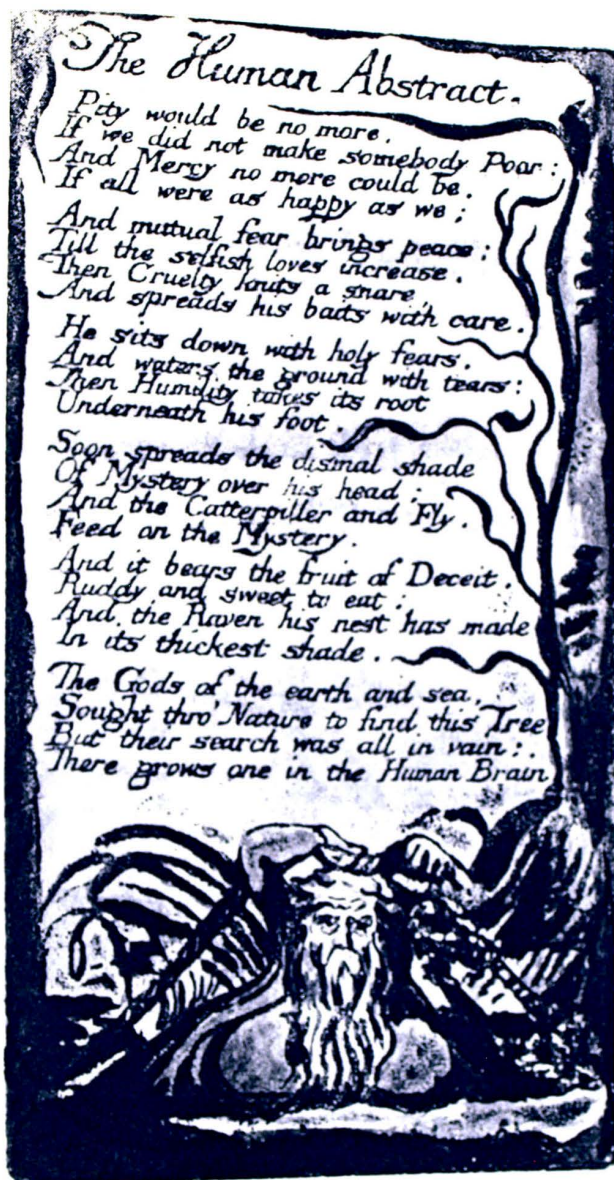 The Human Abstract.
Pity would be no more,
If we did not make somebody Poor:
And Mercy no more could be,
If all were as happy as we;
And mutual fear brings peace:
Till the selfish loves increase.
Then Cruelty knits a snare,
And spreads his baits with care.
He sits down with holy fears,
And waters the ground with tears:
Then Humility takes its root
Underneath his foot.
Soon spreads the dismal shade
Of Mystery over his head:
And the Catterpiller and Fly,
Feed on the Mystery.
And it bears the fruit of Deceit,
Ruddy and sweet to eat:
And the Raven his nest has made
In its thickest shade.
The Gods of the earth and sea,
Sought thro' Nature to find this Tree
But their search was all in vain:
There grows one in the Human Brain